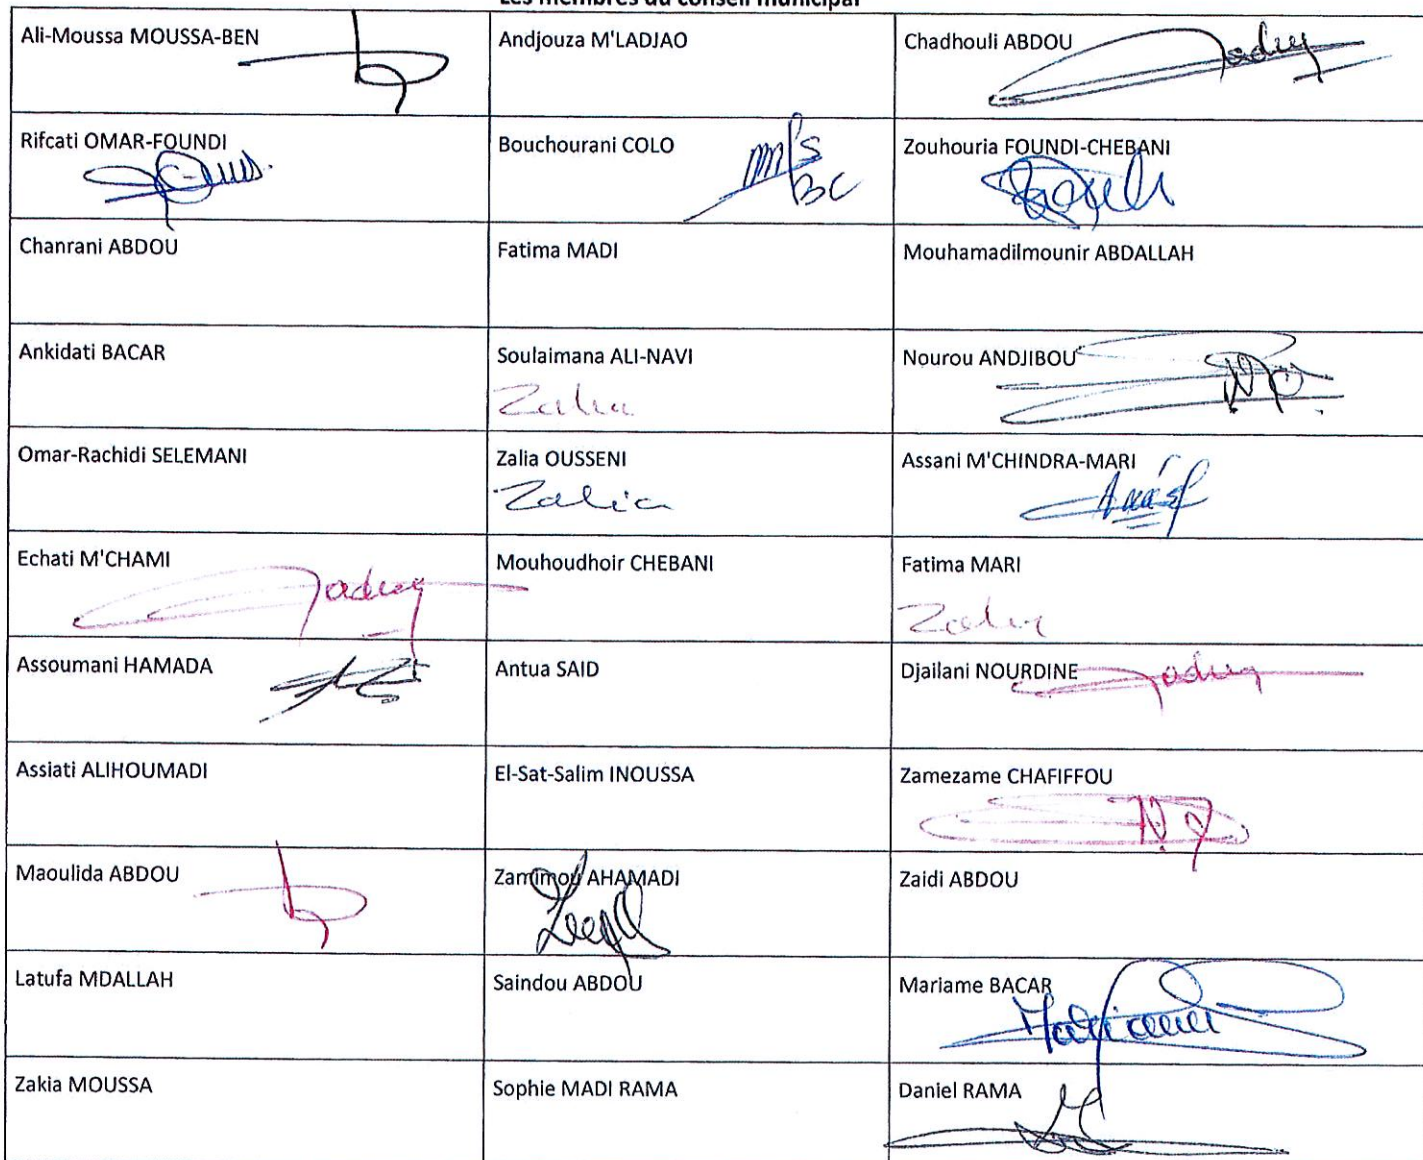 Les membres du conseil municipal
Ali-Moussa MOUSSA-BEN
Andjouza M'LADJAO
Chadhouli ABDOU
Rifcati OMAR-FOUNDI
Bouchourani COLO
BC
Zouhouria FOUNDI-CHEBANI
Chanrani ABDOU
Fatima MADI
Mouhamadilmounir ABDALLAH
Ankidati BACAR
Soulaimana ALI-NAVI
Nourou ANDJIBOU
Omar-Rachidi SELEMANI
Zalia OUSSENI
Zalia
Assani M'CHINDRA-MARI
Echati M'CHAMI
Mouhoudhoir CHEBANI
Fatima MARI
Assoumani HAMADA
Antua SAID
Djailani NOURDINE
Assiati ALIHOUMADI
El-Sat-Salim INOUSSA
Zamezame CHAFIFFOU
Maoulida ABDOU
Zamimou AHAMADI
Zaidi ABDOU
Latufa MDALLAH
Saindou ABDOU
Mariame BACAR
Zakia MOUSSA
Sophie MADI RAMA
Daniel RAMA